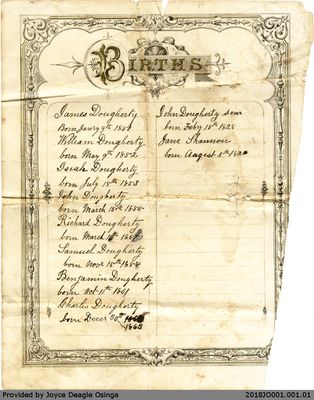 BIRTHS
James Dougherty
Born Jany 9th 1851
William Dougherty
born May 9th 1852
Isiah Dougherty
born July 15th 1853
John Dougherty
born March 15th 1855
Richard Dougherty
born March 1857
Samuel Dougherty
born Novr 15th
Benjamin Dougherty
born Oct 11th 1861
Charles Dougherty
born Decer 20th
1863
John Dougherty senr
born Feby 15th 1825
Jane Shannon
born August 5th
Provided by Joyce Deagle Osinga
2018JO001.001.01